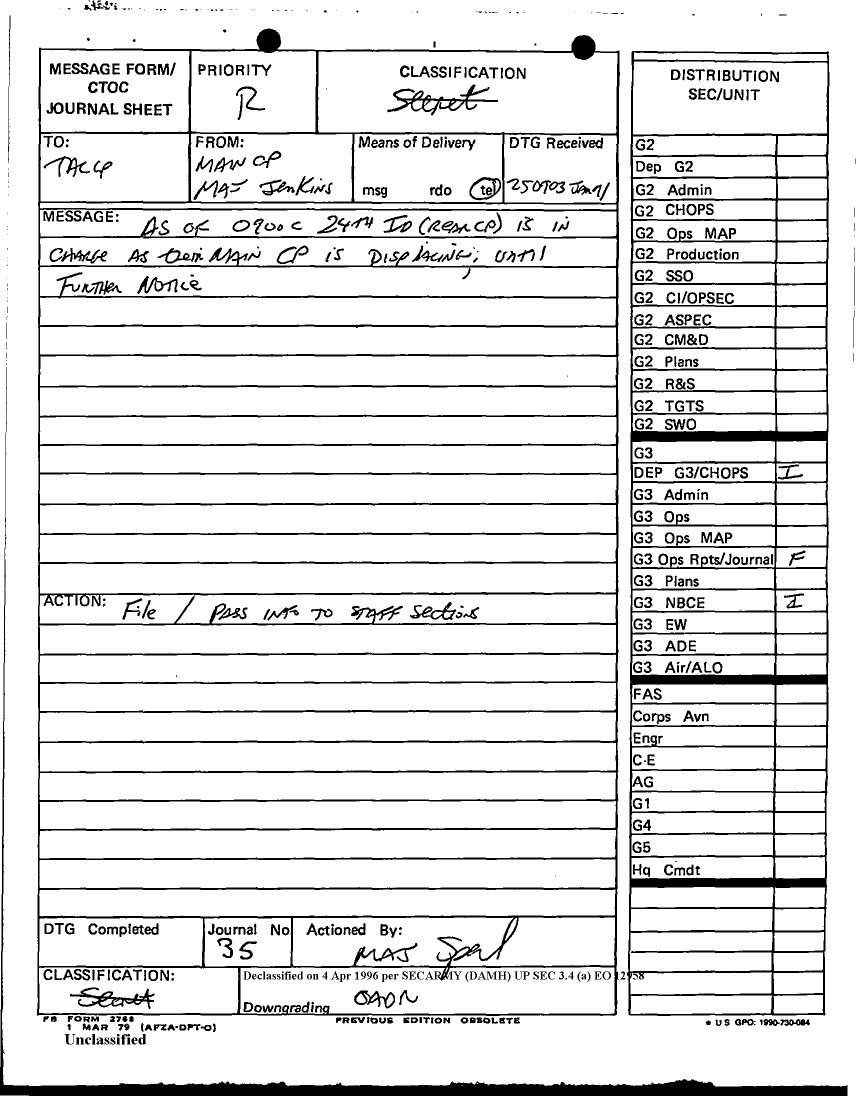 MESSAGE FORM/
CTOC
JOURNAL SHEET
PRIORITY
R
CLASSIFICATION
Secret
TO:
TACCP
FROM:
MAIN CP
MAJ Jenkins
Means of Delivery
msg rdo tel
DTG Received
250903 Jan 91
MESSAGE: AS OF 0900 C 24TH ID (REAR CP) IS IN
CHARGE AS their MAIN CP is DISPLACING; UNTIL
FURTHER NOTICE
ACTION: File / PASS INFO TO STAFF Sections
DTG Completed
Journal No
35
Actioned By:
MAJ
CLASSIFICATION:
Secret
Declassified on 4 Apr 1996 per SECARMY (DAMH) UP SEC 3.4 (a) EO 12958
Downgrading OADR
FB FORM 2768
1 MAR 79 (AFZA-DPT-O)
PREVIOUS EDITION OBSOLETE
Unclassified
DISTRIBUTION
SEC/UNIT
G2
Dep G2
G2 Admin
G2 CHOPS
G2 Ops MAP
G2 Production
G2 SSO
G2 CI/OPSEC
G2 ASPEC
G2 CM&D
G2 Plans
G2 R&S
G2 TGTS
G2 SWO
G3
DEP G3/CHOPS I
G3 Admin
G3 Ops
G3 Ops MAP
G3 Ops Rpts/Journal F
G3 Plans
G3 NBCE I
G3 EW
G3 ADE
G3 Air/ALO
FAS
Corps Avn
Engr
C-E
AG
G1
G4
G5
Hq Cmdt
★ U S GPO: 1990-730-084